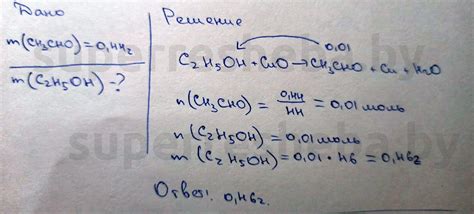 Дано
m(CH₃CHO)=0,44г
m(C₂H₅OH)-?
Решение
0,01
C₂H₅OH+CuO→CH₃CHO+Cu+H₂O
n(CH₃CHO)= 0,44/44 =0,01 моль
n(C₂H₅OH)=0,01моль
m(C₂H₅OH)=0,01·46=0,46г
Ответ: 0,46г.
superresheba.by
superresheba.by